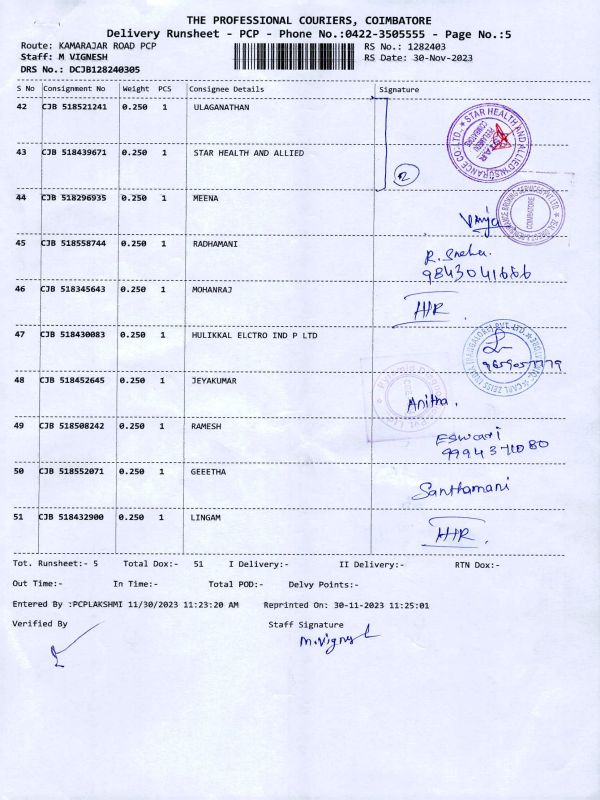 THE PROFESSIONAL COURIERS, COIMBATORE
Delivery Runsheet - PCP - Phone No.:0422-3505555 - Page No.:5
Route: KAMARAJAR ROAD PCP RS No.: 1282403
Staff: M VIGNESH RS Date: 30-Nov-2023
DRS No.: DCJB128240305
S No Consignment No Weight PCS Consignee Details Signature
42 CJB 518521241 0.250 1 ULAGANATHAN
43 CJB 518439671 0.250 1 STAR HEALTH AND ALLIED
2
44 CJB 518296935 0.250 1 MEENA
45 CJB 518558744 0.250 1 RADHAMANI R. Sneha
9843041666
46 CJB 518345643 0.250 1 MOHANRAJ
47 CJB 518430083 0.250 1 HULIKKAL ELCTRO IND P LTD
48 CJB 518452645 0.250 1 JEYAKUMAR
Anitha.
49 CJB 518508242 0.250 1 RAMESH Eswari
50 CJB 518552071 0.250 1 GEEETHA
Santhamani
51 CJB 518432900 0.250 1 LINGAM
Tot. Runsheet:- 5 Total Dox:- 51 I Delivery:- II Delivery:- RTN Dox:-
Out Time:- In Time:- Total POD:- Delvy Points:-
Entered By :PCPLAKSHMI 11/30/2023 11:23:20 AM Reprinted On: 30-11-2023 11:25:01
Verified By Staff Signature
M.Vignesh